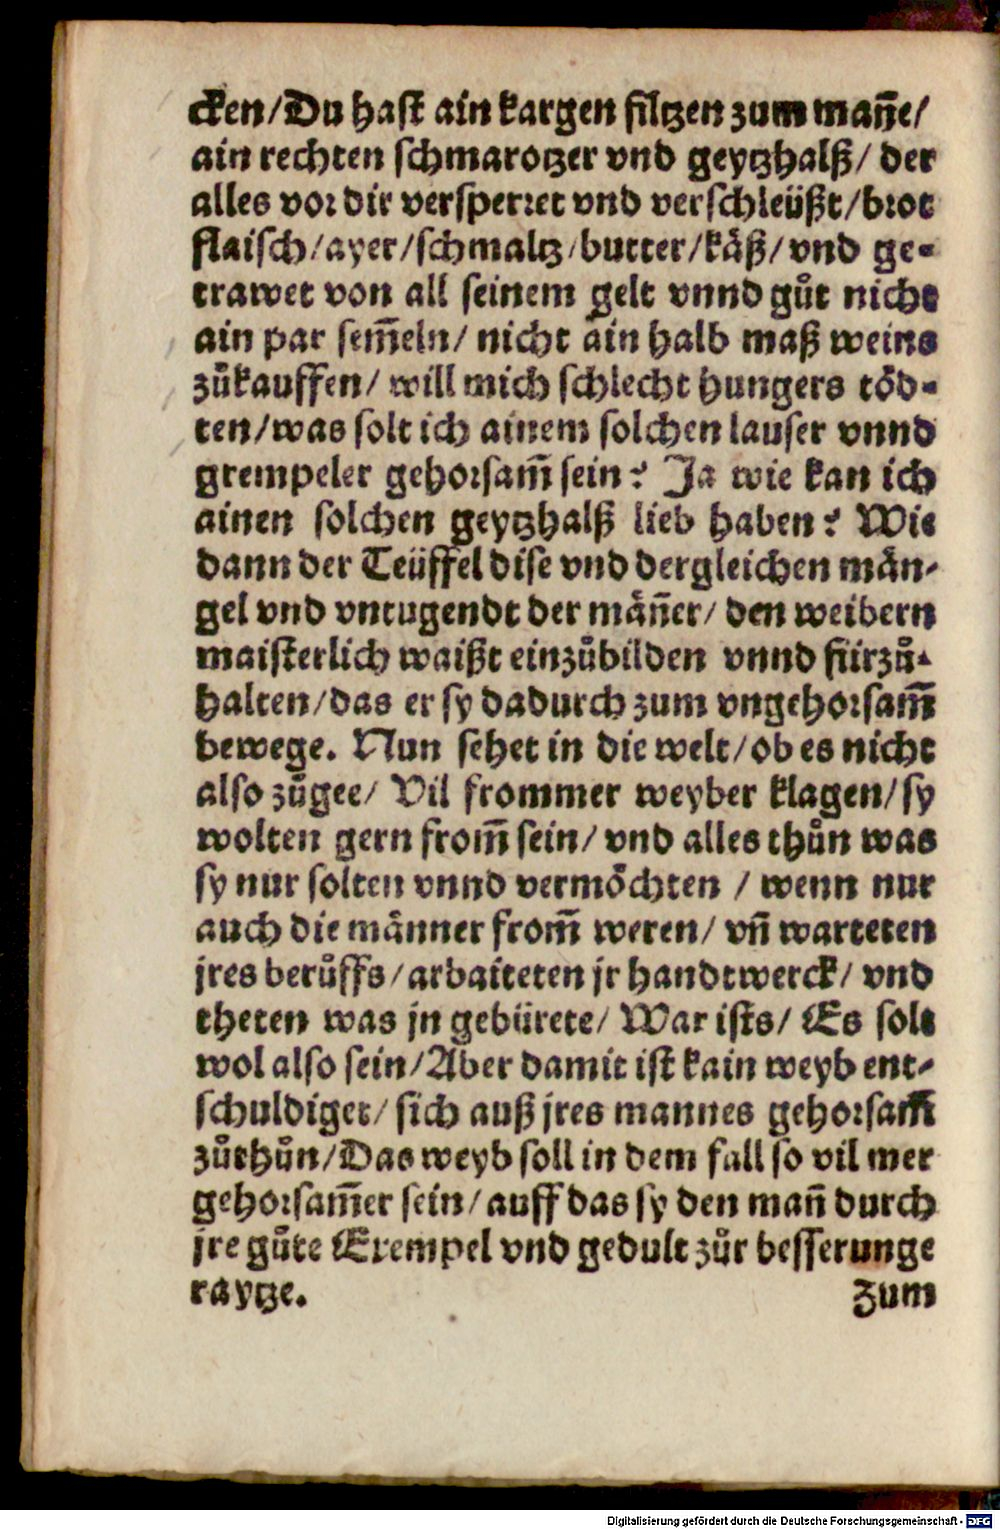 cken/Du hast ain kargen filtzen zum mañe/
ain rechten schmarotzer vnd geytzhalß/ der
alles vor dir versperret vnd verschleüßt/brot
flaisch/ayer/schmaltz/butter/käß/vnd ge-
trawet von all seinem gelt vnnd gůt nicht
ain par sem̃eln/ nicht ain halb maß weins
zůkauffen/ will mich schlecht hungers töd-
ten/was solt ich ainem solchen lauser vnnd
grempeler gehorsam̃ sein? Ja wie kan ich
ainen solchen geytzhalß lieb haben? Wie
dann der Teüffel dise vnd dergleichen män-
gel vnd vntugendt der mäñer/ den weibern
maisterlich waißt einzůbilden vnnd fürzů-
halten/das er sy dadurch zum vngehorsam̃
bewege. Nun sehet in die welt/ob es nicht
also zůgee/ Vil frommer weyber klagen/sy
wolten gern from̃ sein/ vnd alles thůn was
sy nur solten vnnd vermöchten / wenn nur
auch die männer from̃ weren/ vñ warteten
jres berůffs/arbaiteten jr handtwerck/ vnd
theten was jn gebürete/ War ists/ Es solt
wol also sein/Aber damit ist kain weyb ent-
schuldiget/ sich auß jres mannes gehorsam̃
zůthůn/Das weyb soll in dem fall so vil mer
gehorsam̃er sein/auff das sy den mañ durch
jre gůte Exempel vnd gedult zůr besserunge
raytze. Zum
Digitalisierung gefördert durch die Deutsche Forschungsgemeinschaft - DFG